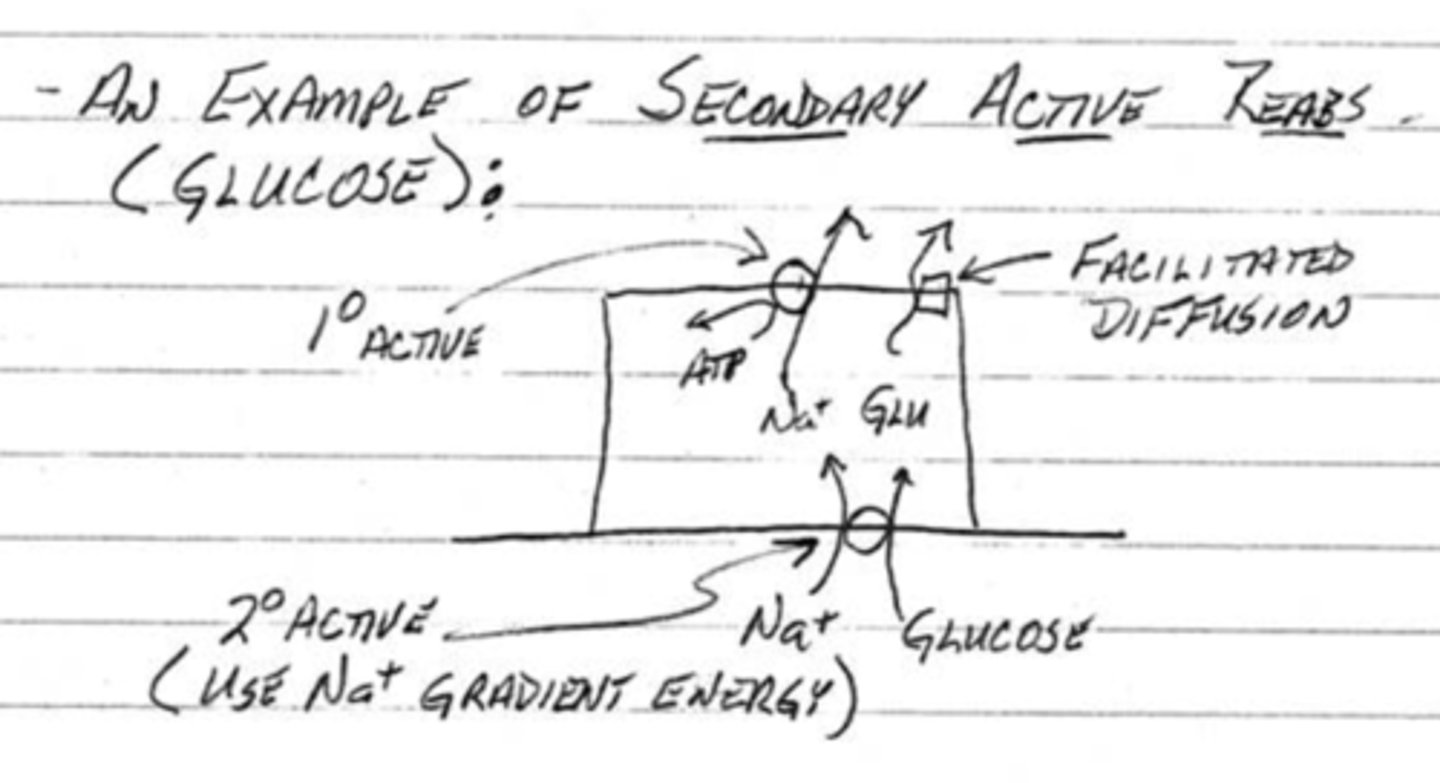 - AN EXAMPLE OF SECONDARY ACTIVE REABS.
(GLUCOSE):
FACILITATED
DIFFUSION
1° ACTIVE
ATP
Na+ GLU
2° ACTIVE
Na+ GLUCOSE
(USE Na+ GRADIENT ENERGY)